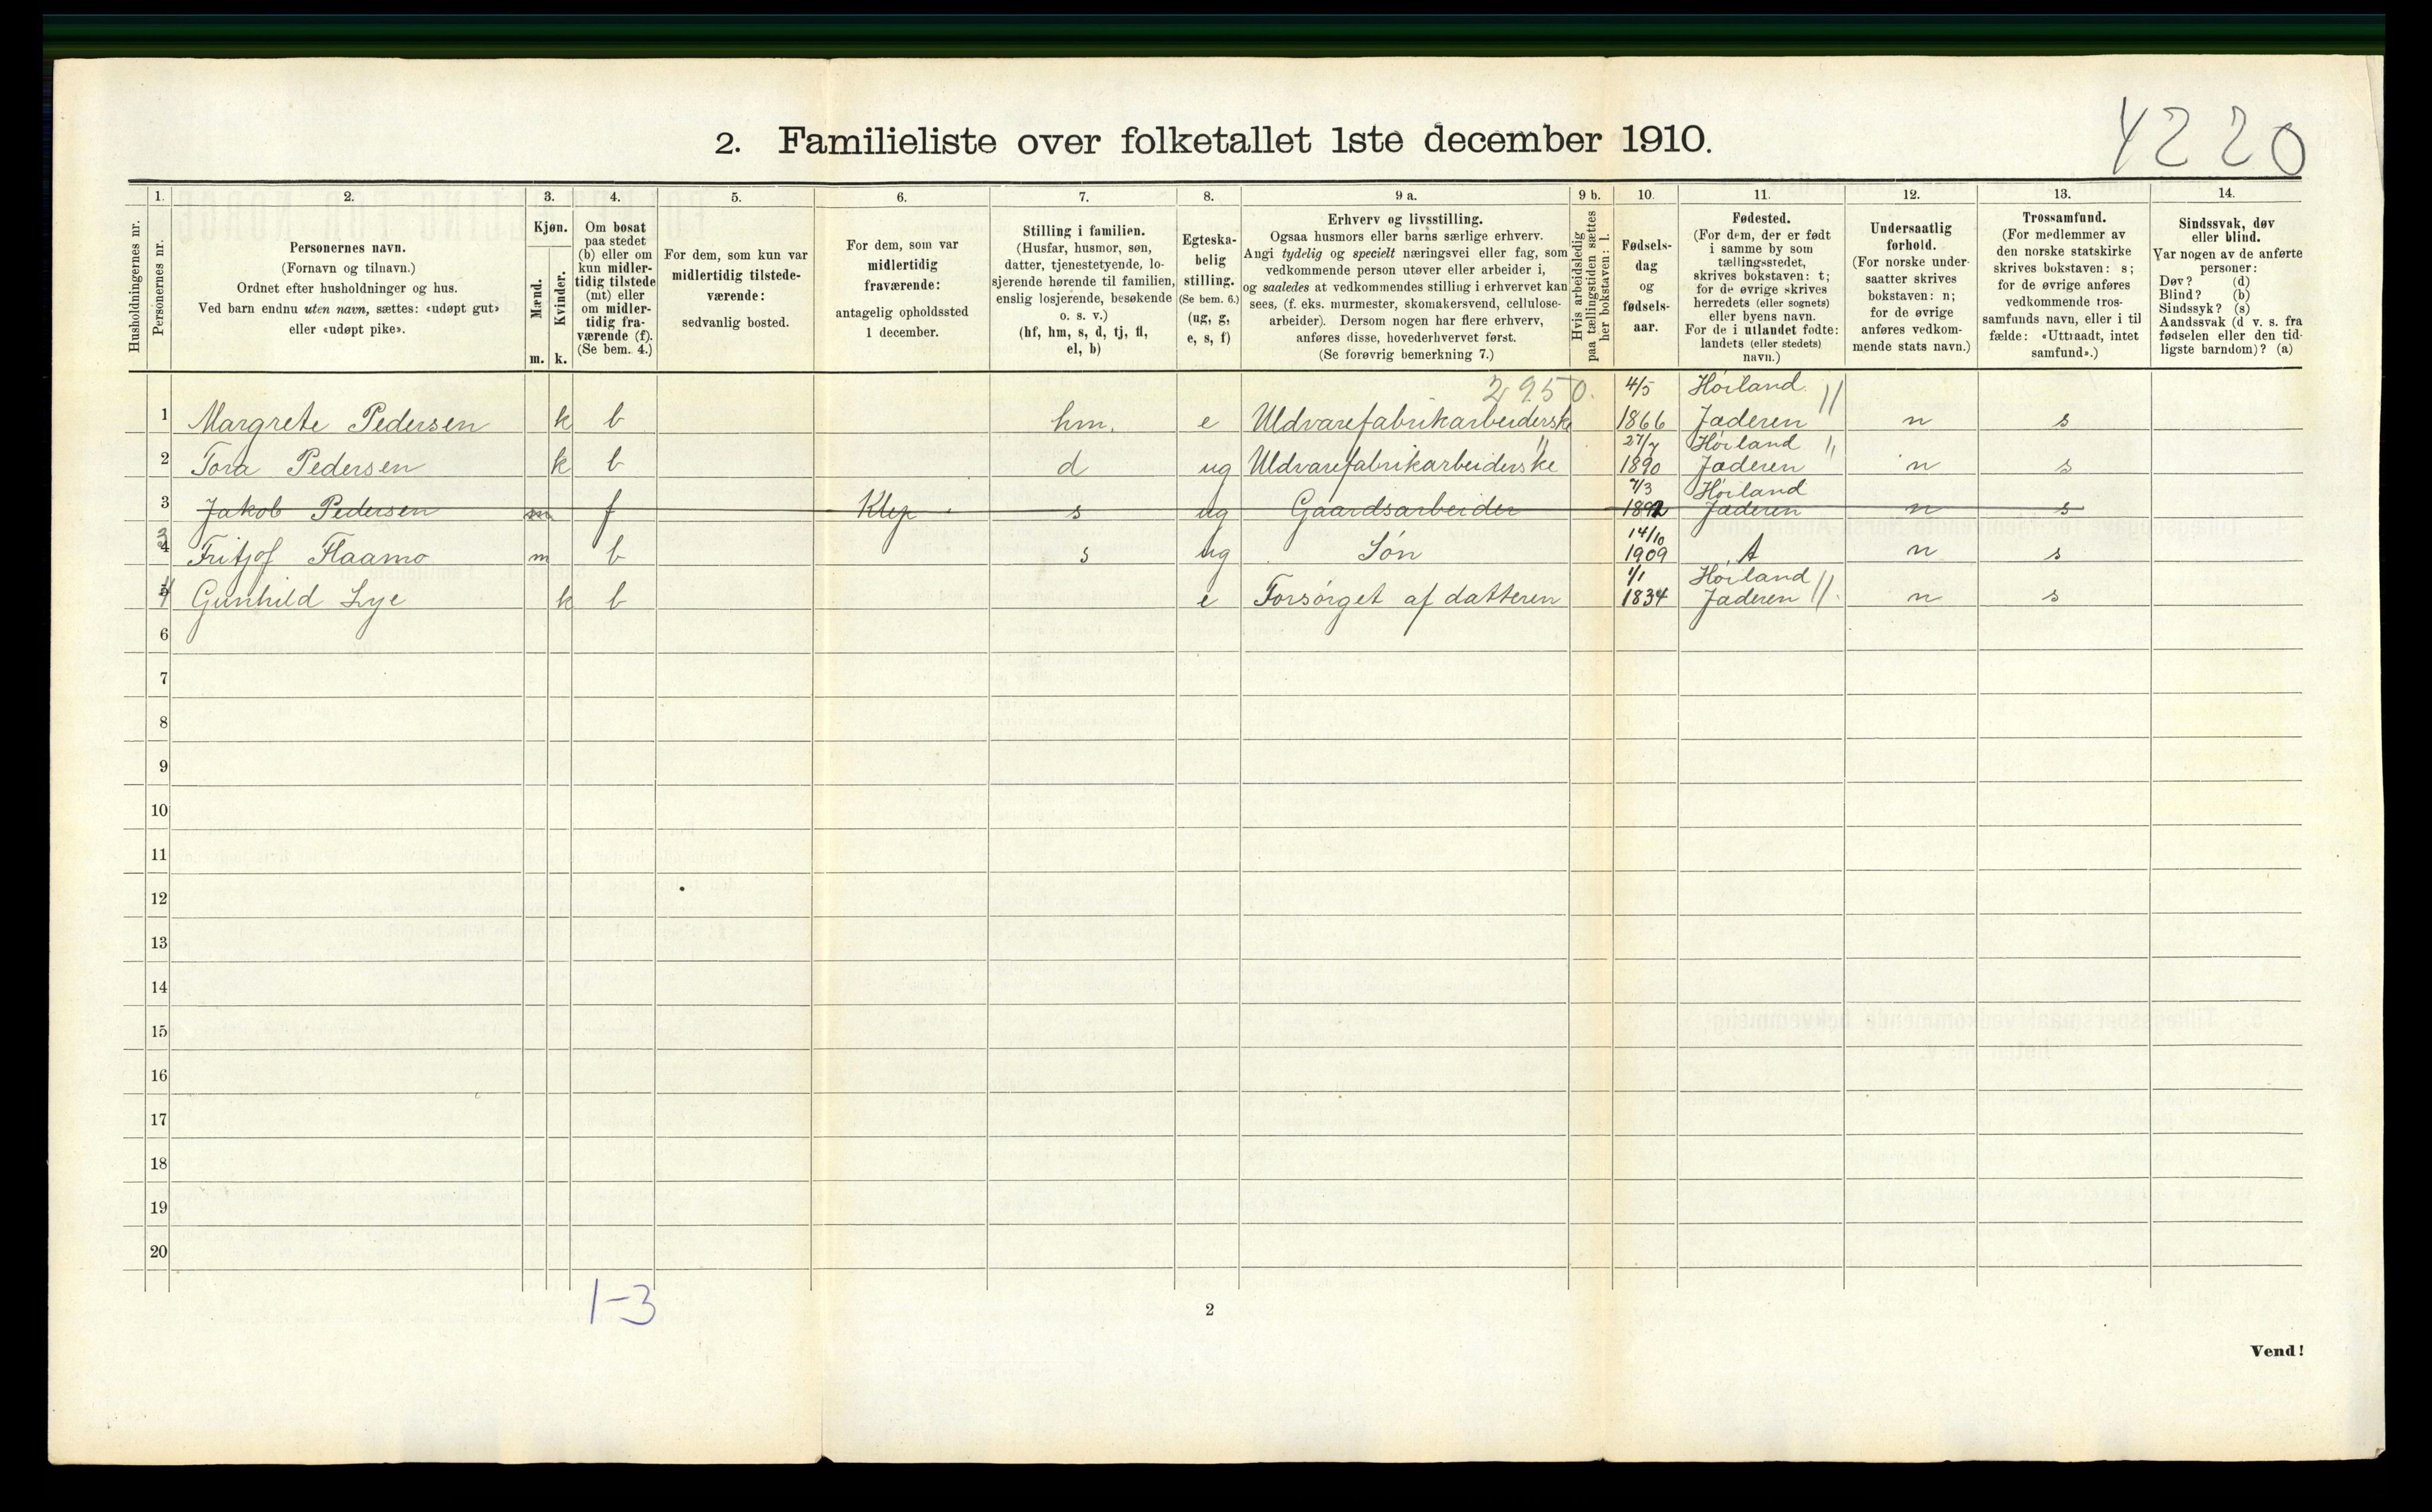 4220
2. Familieliste over folketallet 1ste december 1910.
Husholdningernes nr.
1. Personernes nr.
2. Personernes navn.
(Fornavn og tilnavn.)
Ordnet efter husholdninger og hus.
Ved barn endnu uten navn, sættes: «udøpt gut»
eller «udøpt pike».
3. Kjøn.
Mænd. m.
Kvinder. k.
4. Om bosat
paa stedet
(b) eller om
kun midler-
tidig tilstede
(mt) eller
om midler-
tidig fra-
værende (f).
(Se bem. 4.)
5. For dem, som kun var
midlertidig tilstede-
værende:
sedvanlig bosted.
6. For dem, som var
midlertidig
fraværende:
antagelig opholdssted
1 december.
7. Stilling i familien.
(Husfar, husmor, søn,
datter, tjenestetyende, lo-
sjerende hørende til familien,
enslig losjerende, besøkende
o. s. v.)
(hf, hm, s, d, tj, fl,
el, b)
8. Egteska-
belig
stilling.
(Se bem. 6.)
(ug, g,
e, s, f)
9 a. Erhverv og livsstilling.
Ogsaa husmors eller barns særlige erhverv.
Angi tydelig og specielt næringsvei eller fag, som
vedkommende person utøver eller arbeider i,
og saaledes at vedkommendes stilling i erhvervet kan
sees, (f. eks. murmester, skomakersvend, cellulose-
arbeider). Dersom nogen har flere erhverv,
anføres disse, hovederhvervet først.
(Se forøvrig bemerkning 7.)
9 b. Hvis arbeidsledig
paa tællingstiden sættes
her bokstaven: l.
10. Fødsels-
dag
og
fødsels-
aar.
11. Fødested.
(For dem, der er født
i samme by som
tællingsstedet,
skrives bokstaven: t;
for de øvrige skrives
herredets (eller sognets)
eller byens navn.
For de i utlandet fødte:
landets (eller stedets)
navn.)
12. Undersaatlig
forhold.
(For norske under-
saatter skrives
bokstaven: n;
for de øvrige
anføres vedkom-
mende stats navn.)
13. Trossamfund.
(For medlemmer av
den norske statskirke
skrives bokstaven: s;
for de øvrige anføres
vedkommende tros-
samfunds navn, eller i til
fælde: «Uttraadt, intet
samfund».)
14. Sindssvak, døv
eller blind.
Var nogen av de anførte
personer:
Døv? (d)
Blind? (b)
Sindssyk? (s)
Aandssvak (d v. s. fra
fødselen eller den tid-
ligste barndom)? (a)
2950. 4/5 Høiland
1 Margrete Pedersen k b hm. e Uldvarefabrikarbeiderske 1866 Jæderen n s
27/7 Høiland
2 Tora Pedersen k b d ug Uldvarefabrikarbeiderske 1890 Jæderen n s
7/3 Høiland
3 Jakob Pedersen m f Klep s ug Gaardsarbeider 1892 Jæderen n s
14/10
3 4 Fritjof Flaamo m b s ug Søn 1909 t n s
1/1 Høiland
4 5 Gunhild Lye k b e Forsørget af datteren 1834 Jæderen n s
6
7
8
9
10
11
12
13
14
15
16
17
18
19
20
1-3
2
Vend!